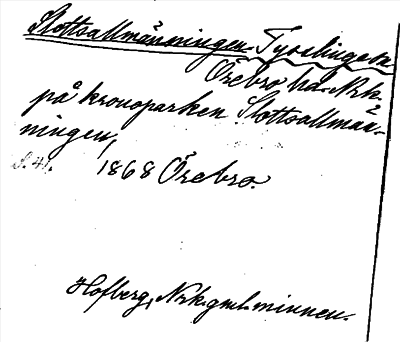 Slottsallmänningen Tysslinge sn
Örebro hd. Nrk.
på kronoparken Slottsallmän-
ningen,
S. 41. 1868 Örebro.
Hofberg, Nrk. gml. minnen.